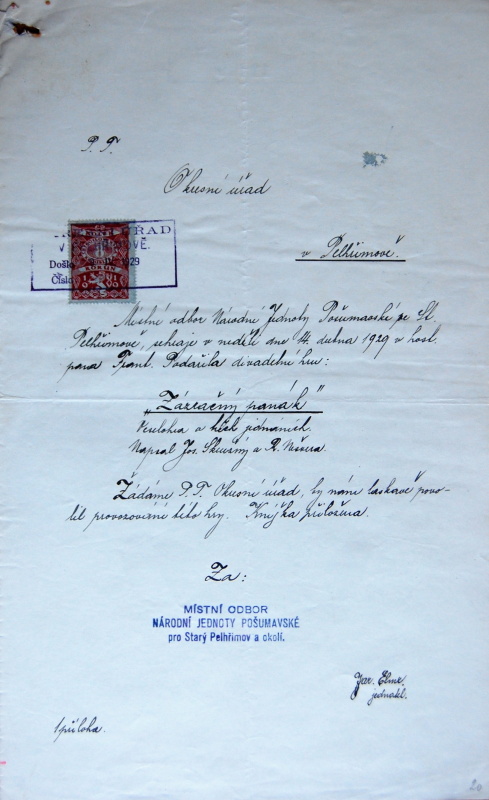 P. T.
Okresní úřad
v Pelhřimově.
ÚŘAD
V PELHŘIMOVĚ.
Došlo 1929
Číslo
Místní odbor Národní Jednoty Pošumavské pro St.
Pelhřimov, sehraje v neděli dne 14. dubna 1929 v host.
pana Frant. Podařila divadelní hru:
„Zázračný panák"
Veselohra o třech jednáních.
Napsal Jos. Skružný a R. Nešvera.
Žádáme P. T. Okresní úřad, by nám laskavě povo-
lil provozování této hry. Knížka přiložena.
Za:
MÍSTNÍ ODBOR
NÁRODNÍ JEDNOTY POŠUMAVSKÉ
pro Starý Pelhřimov a okolí.
Jar.
jednatel.
1 příloha.
20